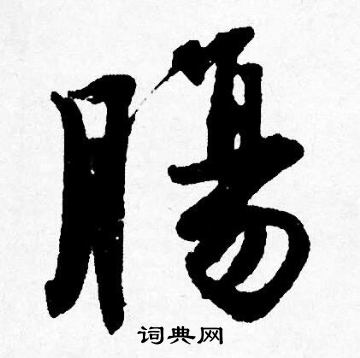 腸
词典网